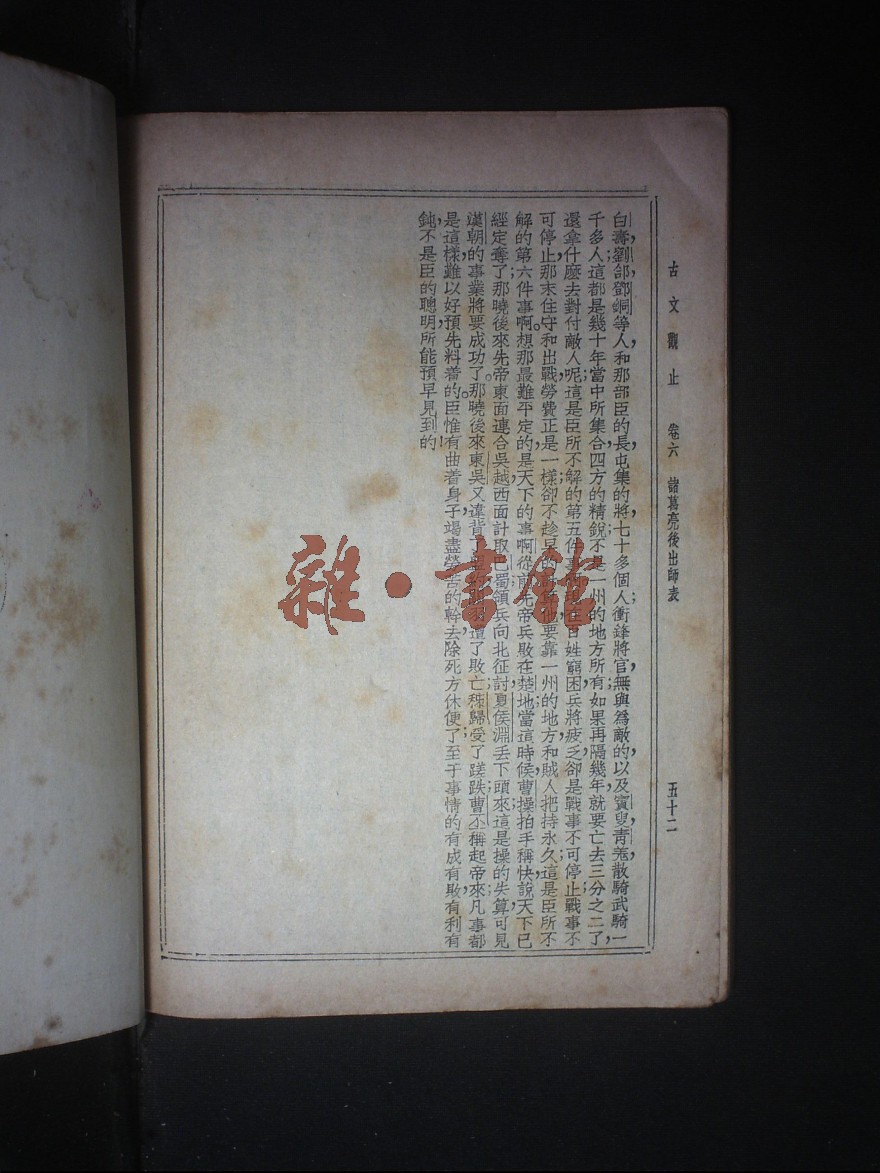 古文觀止 卷六 諸葛亮後出師表 五十二
白壽，劉郃，鄧銅等人，和那部臣的長，屯集的將，七十多個人；衝鋒將官，無與爲敵的，以及賨叟，青羌，散騎，武騎，一
千多人；這都是幾十年當中，所集合四方的精銳，不是一州的地方所有；如果再隔幾年，就要亡去三分之二了，
還拿什麼去對付敵人呢？這是臣所不解的第五件事 百姓窮困，兵將疲乏，卻是戰事不可停止；戰事不
可停止，那末住守和出戰，勞費正是一樣，卻不趁早的 他，要靠一州的地方，和賊人把持永久；這是臣所不
解的第六件事啊。想那最難平定的，是天下的事啊！從前先帝兵敗在楚地，當這時候，曹操拍手稱快，說天下已
經定奪了；那曉後來先帝東面連合吳越，西面計取巴蜀，領兵向北征討，夏侯淵丟下頭來；這是操的失算，可見
漢朝的事業，將要成功了。那曉後來東吳又違背 遭了敗亡，秭歸受了蹉跌，曹丕稱起帝來；凡事都
是這樣，難以好預先料着的。臣惟有曲着身子，竭盡勞苦的幹去，除死方休便了；至于事情的有成有敗，有利有
鈍，不是臣的聰明，所能預早見到的！
雜·書館